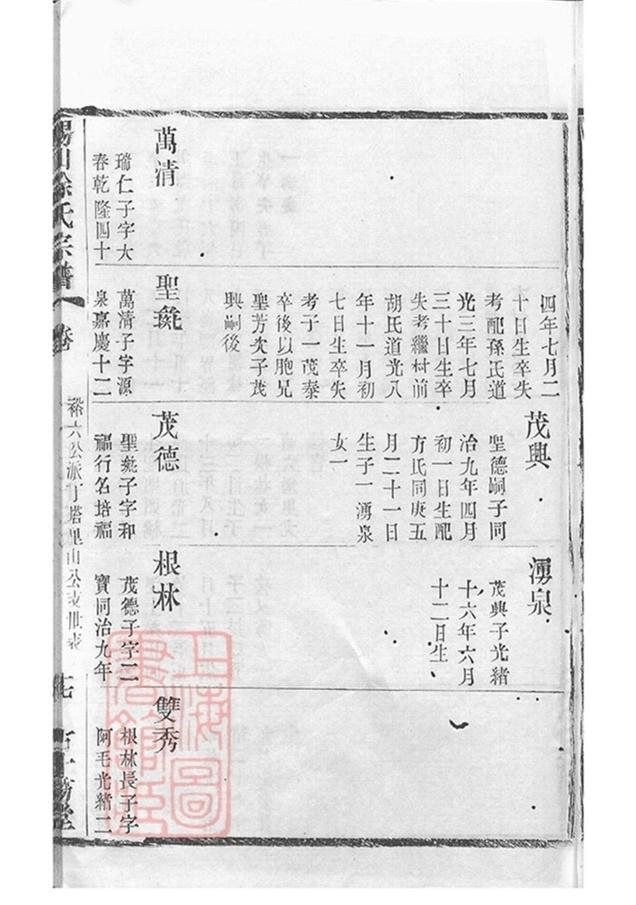 萬清
瑞仁子字大
春乾隆四十
四年七月二
十日生卒失
考配孫氏道
光三年七月
三十日生卒
失考繼村前
胡氏道光八
年十一月初
七日生卒失
考子一茂泰
卒後以胞兄
聖芳次子茂
興嗣後
聖
萬清子字源
泉嘉慶十二
茂興
聖德嗣子同
治九年四月
初一日生配
方氏同庚五
月二十一日
生子一湧泉
女一
茂德
子字和
福行名培福
湧泉
茂興子光緒
十六年六月
十二日生
根林
茂德子字二
寶同治九年
雙秀
根林長子字
阿毛光緒二
川徐氏宗譜 卷
裕六公派丁塔里山公支世表
七
堂
上海圖書館藏